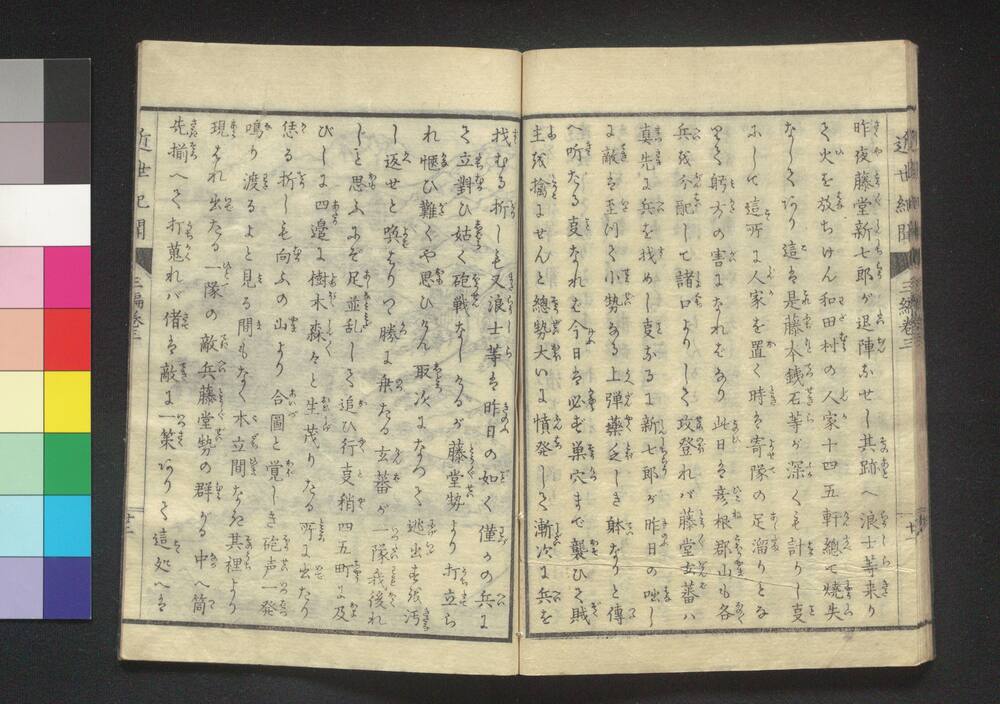 近世紀聞
三編巻三
昨夜藤堂新七郎が退陣なせし其跡へ浪士等来り
て火を放ちけん和田村の人家十四五軒總て焼失
なしてあり這は是藤本銕石等が深くも計りし叓
にして這所に人家を置く時は寄隊の足溜りとな
りて躬方の害になればなり此日は彦根郡山も各
兵を分配して諸口よりして攻登れバ藤堂玄蕃ハ
真先に兵を找めし叓なるに新七郎が昨日の咄し
に敵は至つて小勢なる上弾藥乏しき躰なりと傳
へ聴たる叓なれば今日は必ず巣穴まで襲ひて賊
主を擒にせんと總勢大いに憤発して漸次に兵を
找むる折しも又浪士等は昨日の如く僅かの兵に
て立對ひ姑く砲戦なしけるが藤堂勢より打立ら
れ愜ひ難くや思ひけん取次になつて逃出すを汚
し返せと喚はりつ勝に乗たる玄蕃が一隊我後れ
じと思ふにぞ足並乱して追ひ行叓稍四五町に及
びしに四邊に樹木森々と生茂りたる所に出たり
恁る折しも向ふの山より合圖と覚しき砲声一発
鳴り渡るよと見る間もなく木立間なき其裡より
現はれ出たる一隊の敵兵藤堂勢の群がる中へ筒
先揃へて打蒐れバ偖は敵に一策ありて這処へは
近世紀聞
三編巻三